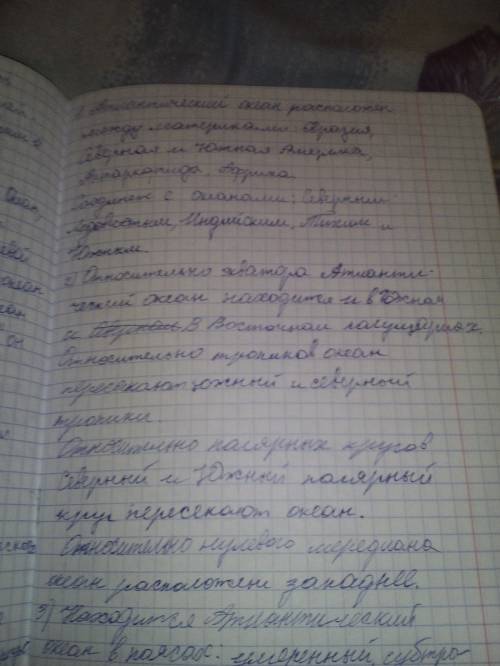 1) Атлантический океан расположен
между материками: Евразия,
Северная и Южная Америка,
Антарктида, Африка.
Соединен с океанами: Северным
Ледовитым, Индийским, Тихим и
Южным.
2) Относительно экватора Атланти-
ческий океан находится и в Южная
и В Восточном полушариях.
Относительно тропиков океан
пересекают южный и северный
тропики.
Относительно полярных кругов
Северный и Южный полярный
круг пересекают океан.
Относительно нулевого меридиана
океан расположен западнее.
3) Находится Атлантический
океан в поясах: умеренный субтро-